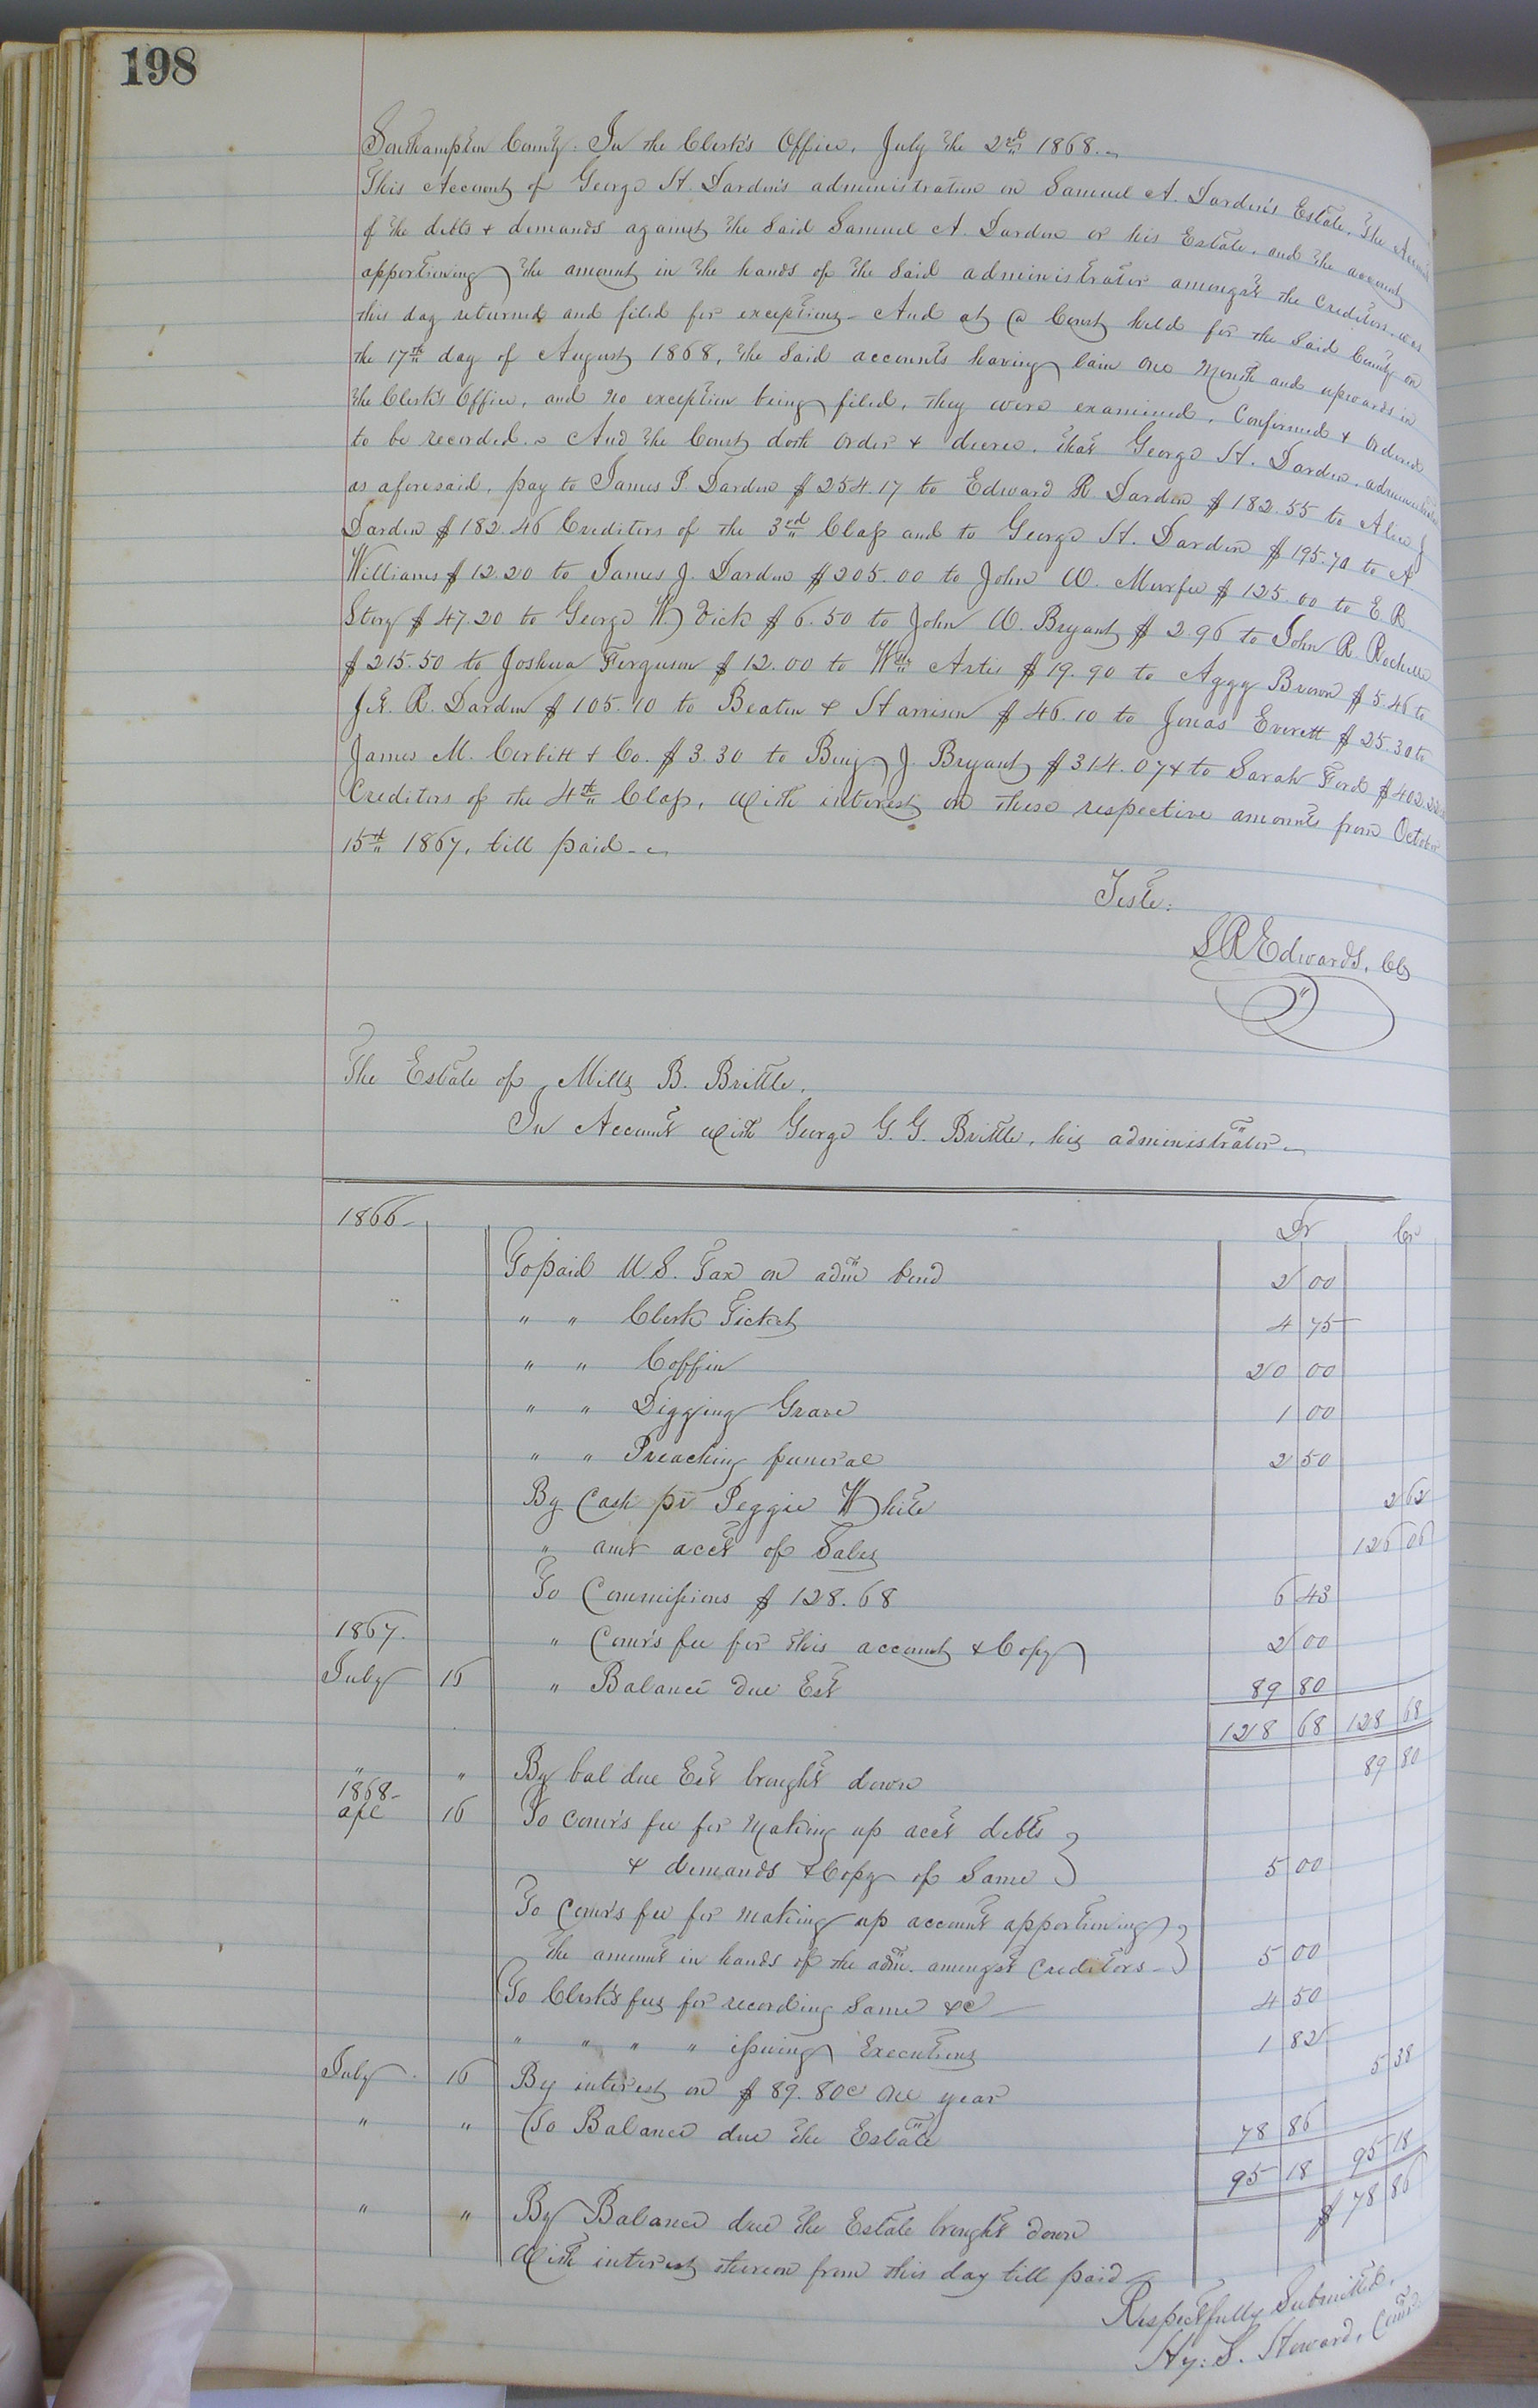 198
Southampton County. In the Clerk's Office, July the 2nd 1868.
This Account of George H. Darden's administration on Samuel A. Darden's Estate, the Account
of the debts & demands against the Said Samuel A. Darden or his Estate, and the account
apportioning the amount in the hands of the Said administrator amongst the Creditors, was
this day returned and filed for exceptions - And at a Court held for the Said County on
the 17th day of August 1868, the Said accounts having lain one Month and upwards in
the Clerk's Office, and no exception being filed, they were examined, Confirmed & Ordered
to be recorded. And the Court doth order & decree, that George H. Darden, administrator
as aforesaid, pay to James P. Darden $254.17 to Edward R. Darden $182.55 to Alice J
Darden $182.46 Creditors of the 3rd Class and to George H. Darden $195.70 to A
Williams $12.20 to James J. Darden $205.00 to John W. Murfee $125.00 to E. R.
Story $47.20 to George W. Vick $6.50 to John W. Bryant $2.96 to John R. Rochelle
$215.50 to Joshua Ferguson $12.00 to Wm Artis $19.90 to Aggy Brown $5.46 to
J. R. Darden $105.10 to Beaton & Harrison $46.10 to Jonas Everett $25.30 to
James M. Corbitt & Co. $3.30 to Benj. J. Bryant $314.07 & to Sarah Ford $402.22
Creditors of the 4th Class, With interest on these respective amounts from October
15th 1867, till paid.
Teste:
L R Edwards, Clk
The Estate of Mills B. Brittle.
In Account with George G. G. Brittle, his administrator
1866 Dr Cr
To paid U.S. Tax on adm bond 2 00
" " Clerk Ticket 4 75
" " Coffin 20 00
" " Digging Grave 1 00
" " Preaching funeral 2 50
By Cash pr Peggie White 2 62
" amt acct of Sales 126 06
To Commissions $128.68 6 43
1867. " Comr's fee for this account & Copy 2 00
July 16 " Balance due Est 89 80
128 68 128 68
" " By bal due Est brought down 89 80
1868
apl 16 To comr's fee for Making up acct debts
& demands & Copy of Same 5 00
To Comr's fee for making up account apportioning
the amount in hands of the adm. amongst Creditors 5 00
To Clerk's fees for recording Same &c 4 50
" " " " issuing Executions 1 82
July 16 By interest on $89.80c One year 5 38
" " To Balance due the Estate 78 86
95 18 95 18
" " By Balance due the Estate brought down $78 86
With interest thereon from this day till paid
Respectfully Submitted,
Hy: S. Howard, Comr